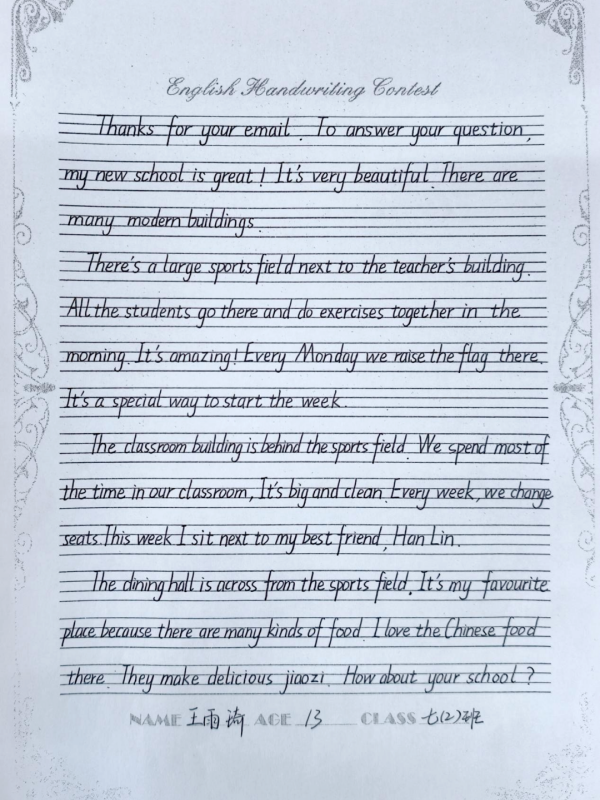 English Handwriting Contest
Thanks for your email. To answer your question,
my new school is great! It's very beautiful. There are
many modern buildings.
There's a large sports field next to the teacher's building.
All the students go there and do exercises together in the
morning. It's amazing! Every Monday we raise the flag there.
It's a special way to start the week.
The classroom building is behind the sports field. We spend most of
the time in our classroom, It's big and clean. Every week, we change
seats. This week I sit next to my best friend, Han Lin.
The dining hall is across from the sports field. It's my favourite
place because there are many kinds of food. I love the Chinese food
there. They make delicious jiaozi. How about your school?
NAME 王雨琦 AGE 13 CLASS 七(2)班